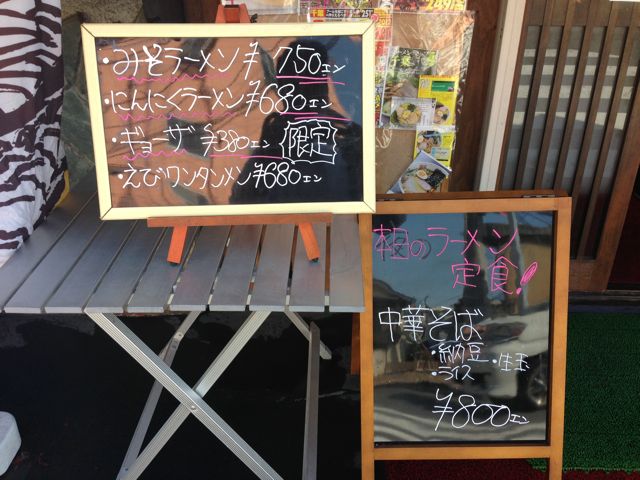 ・みそラーメン ¥750エン
・にんにくラーメン ¥680エン
・ギョーザ ¥380エン 限定
・えびワンタンメン ¥680エン
のラーメン
定食!
中華そば
・納豆 ・生玉
・ライス
¥800エン